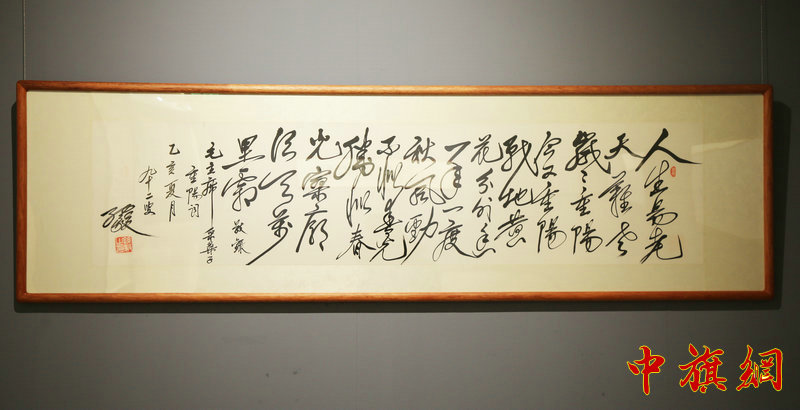 人生易老
天難老
歲々重陽
今又重陽
戰地黃
花分外香
一年一度
秋風勁
不似春光
勝似春
光寥廓
江天萬
里霜 敬錄
毛主席 采桑子
重陽詞
乙亥夏月
九十二叟
中旗網